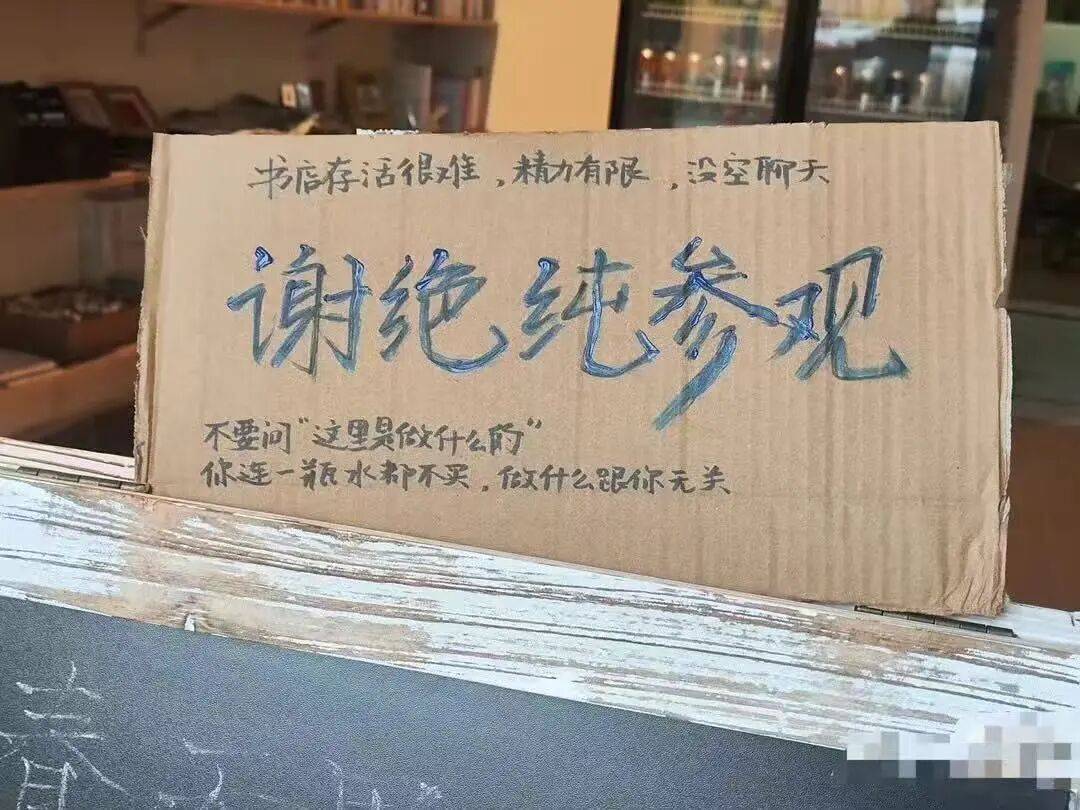 书店存活很难，精力有限，没空聊天
谢绝纯参观
不要问“这里是做什么的”
你连一瓶水都不买，做什么跟你无关
春